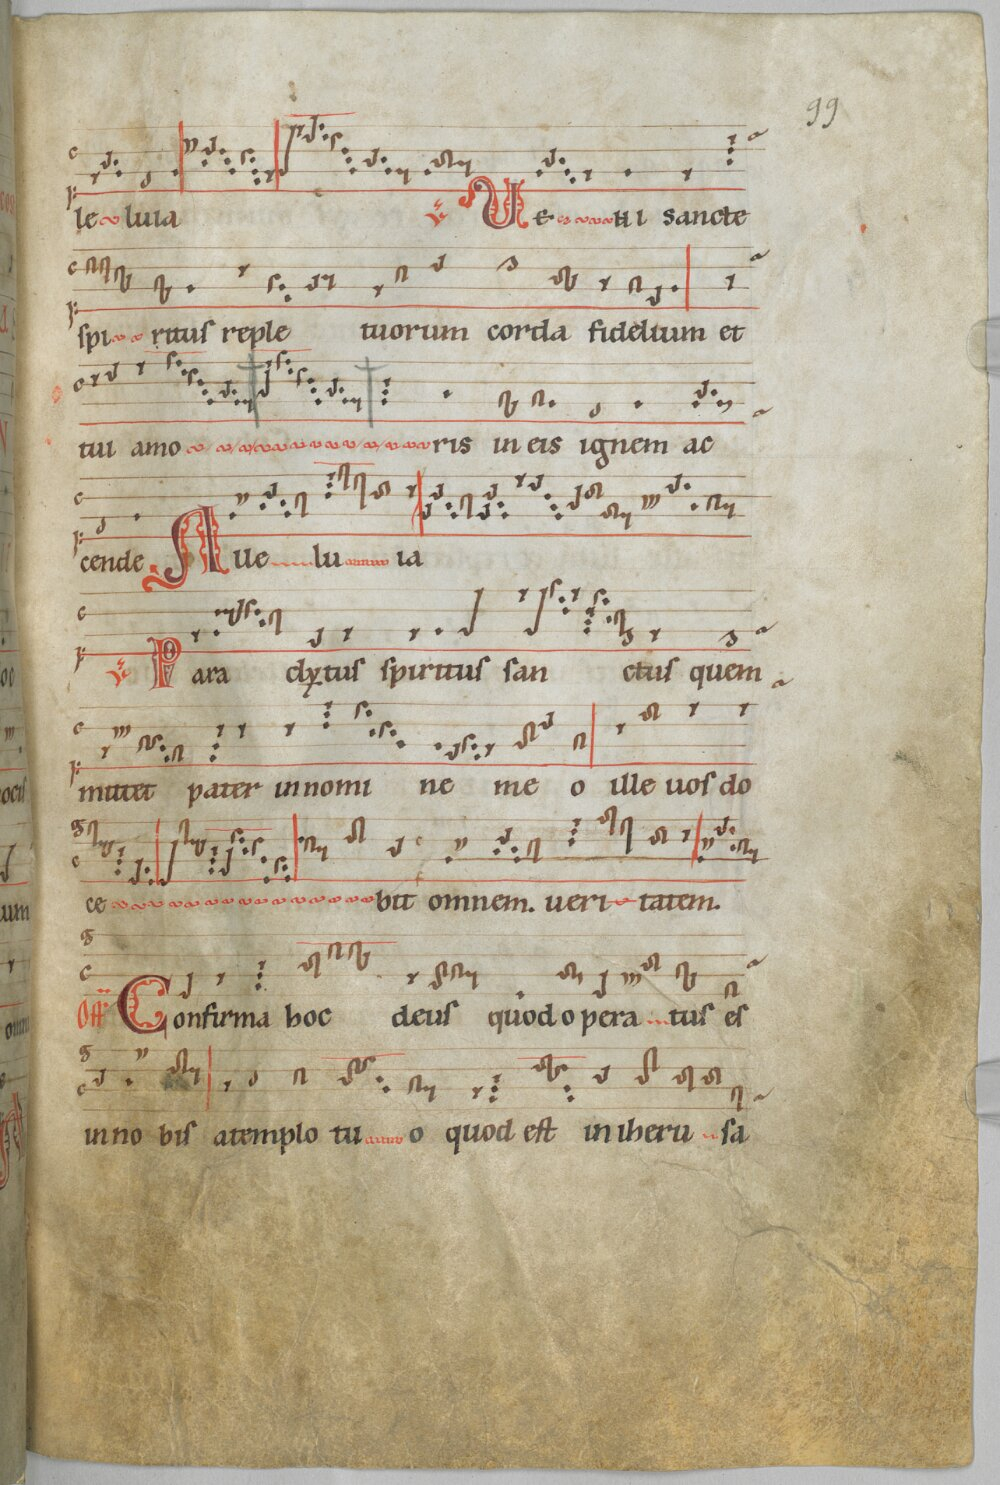 99
le luia ℣ Ve ni sancte
spi ritus reple tuorum corda fidelium et
tui amo ris in eis ignem ac
cende Alle lu ia
℣ Para clytus spiritus san ctus quem
mittet pater in nomi ne me o ille uos do
ce bit omnem. ueri tatem.
Off. Confirma hoc deus quod opera tus es
in no bis a templo tu o quod est in iheru sa